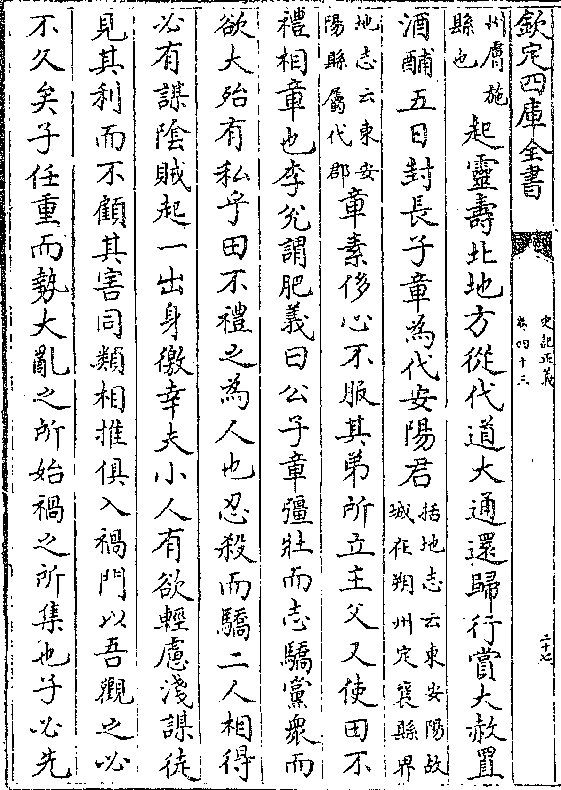 欽定四庫全書
史記正義
卷四十三
二十七
州膚施
縣也
起靈壽北地方從代道大通還歸行賞大赦置
酒酺五日封長子章為代安陽君
括地志云東安陽故
城在朔州定襄縣界
地志云東安
陽縣屬代郡
章素侈心不服其弟所立主父又使田不
禮相章也李兊謂肥義曰公子章彊壯而志驕黨衆而
欲大殆有私乎田不禮之為人也忍殺而驕二人相得
必有謀陰賊起一出身徼幸夫小人有欲輕慮淺謀徒
見其利而不顧其害同類相推俱入禍門以吾觀之必
不久矣子任重而勢大亂之所始禍之所集也子必先